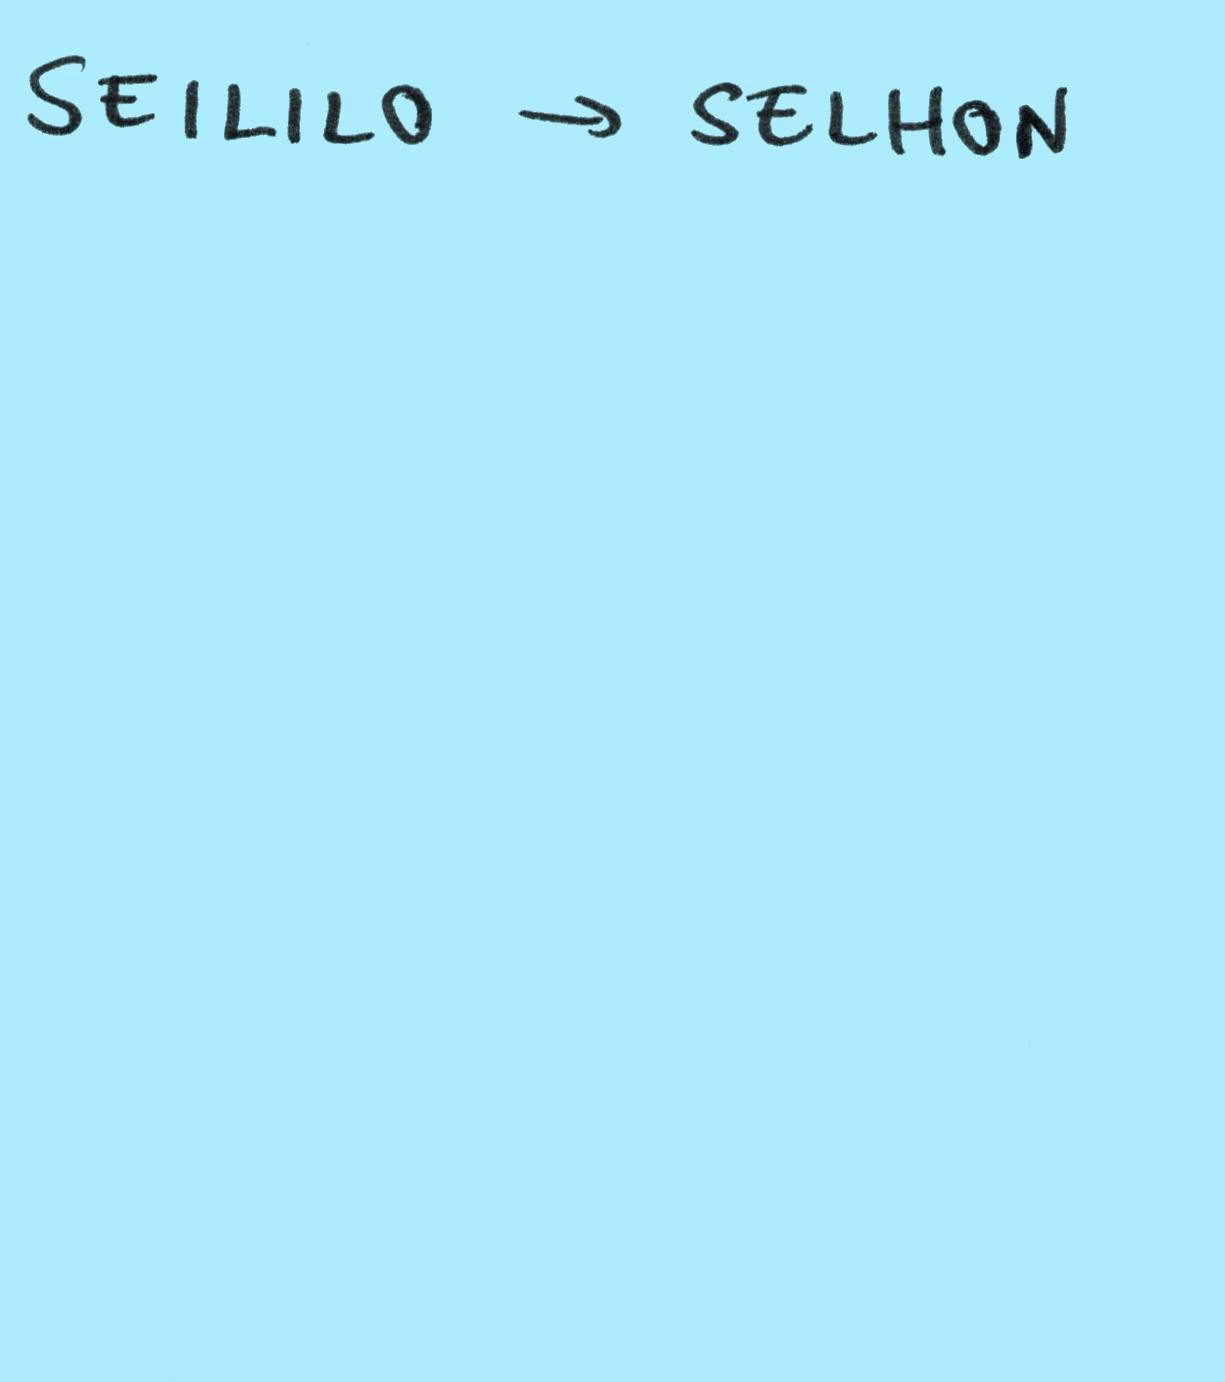 SEILILO → SELHON